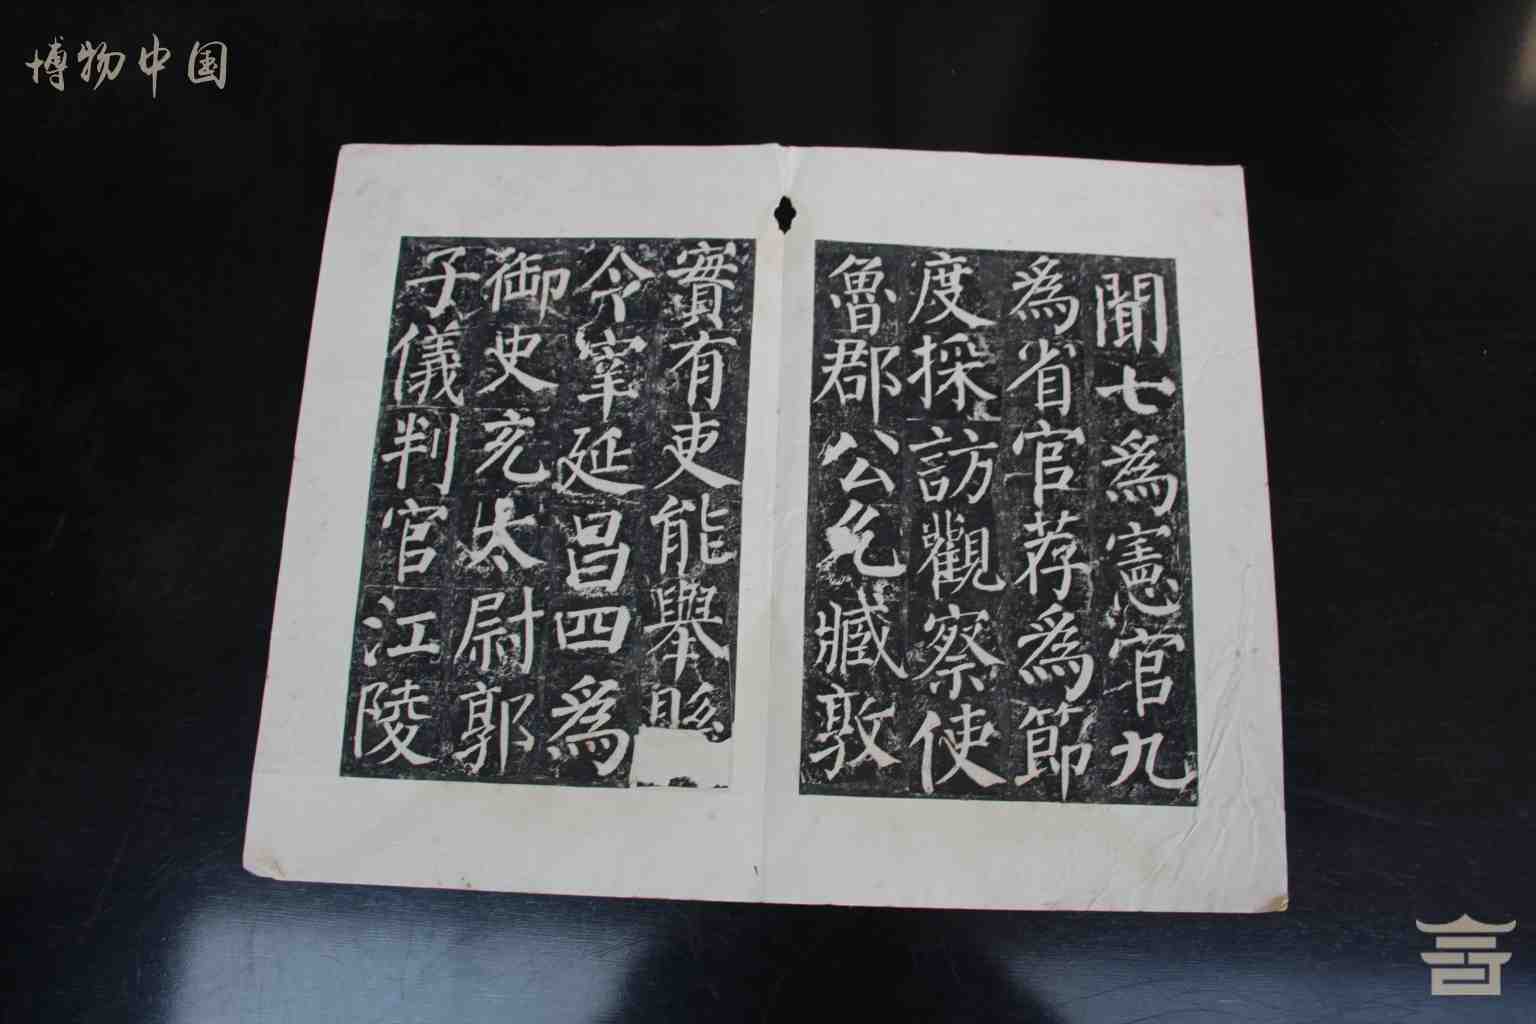 博物中国
聞七爲憲官九
爲省官荐爲節
度採訪觀察使
魯郡公允臧敦
實有吏能舉縣
令宰延昌四爲
御史充太尉郭
子儀判官江陵